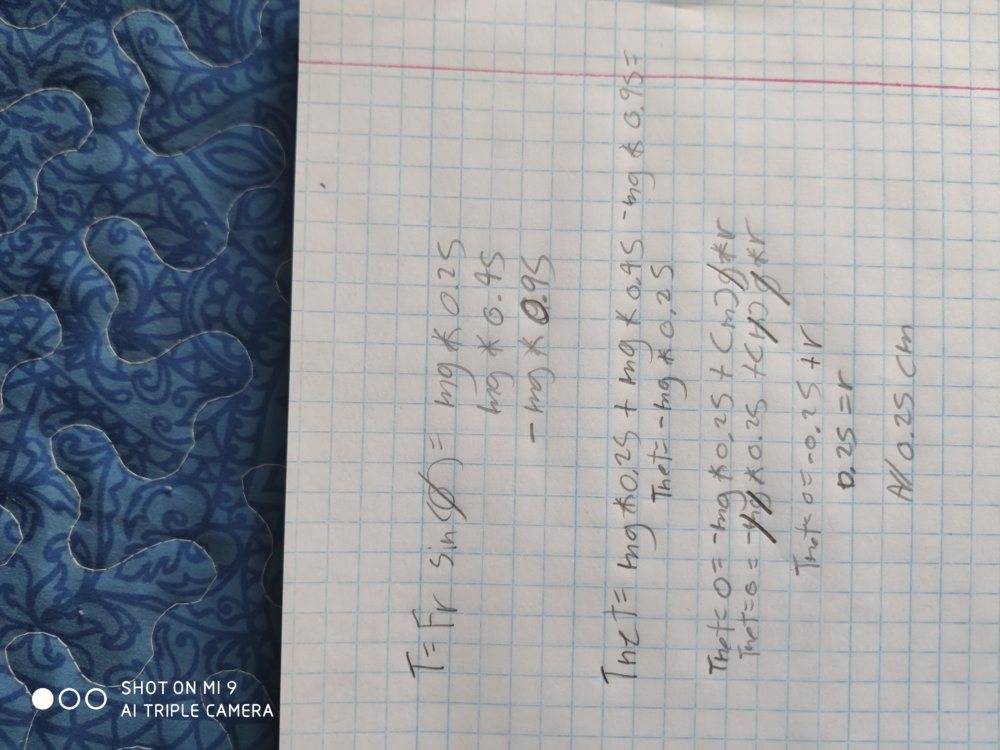 T = Fr sin(φ) = mg * 0.25
mg * 0.45
- mg * 0.95
Tnet = mg * 0.25 + mg * 0.45 - mg * 0.95 =
Tnet = - mg * 0.25
Tnet = 0 = -mg * 0.25 + (m)g * r
Tnet = 0 = -mg * 0.25 + (m)g * r
Tnet = 0 = -0.25 + r
0.25 = r
A// 0.25 cm
SHOT ON MI 9
AI TRIPLE CAMERA